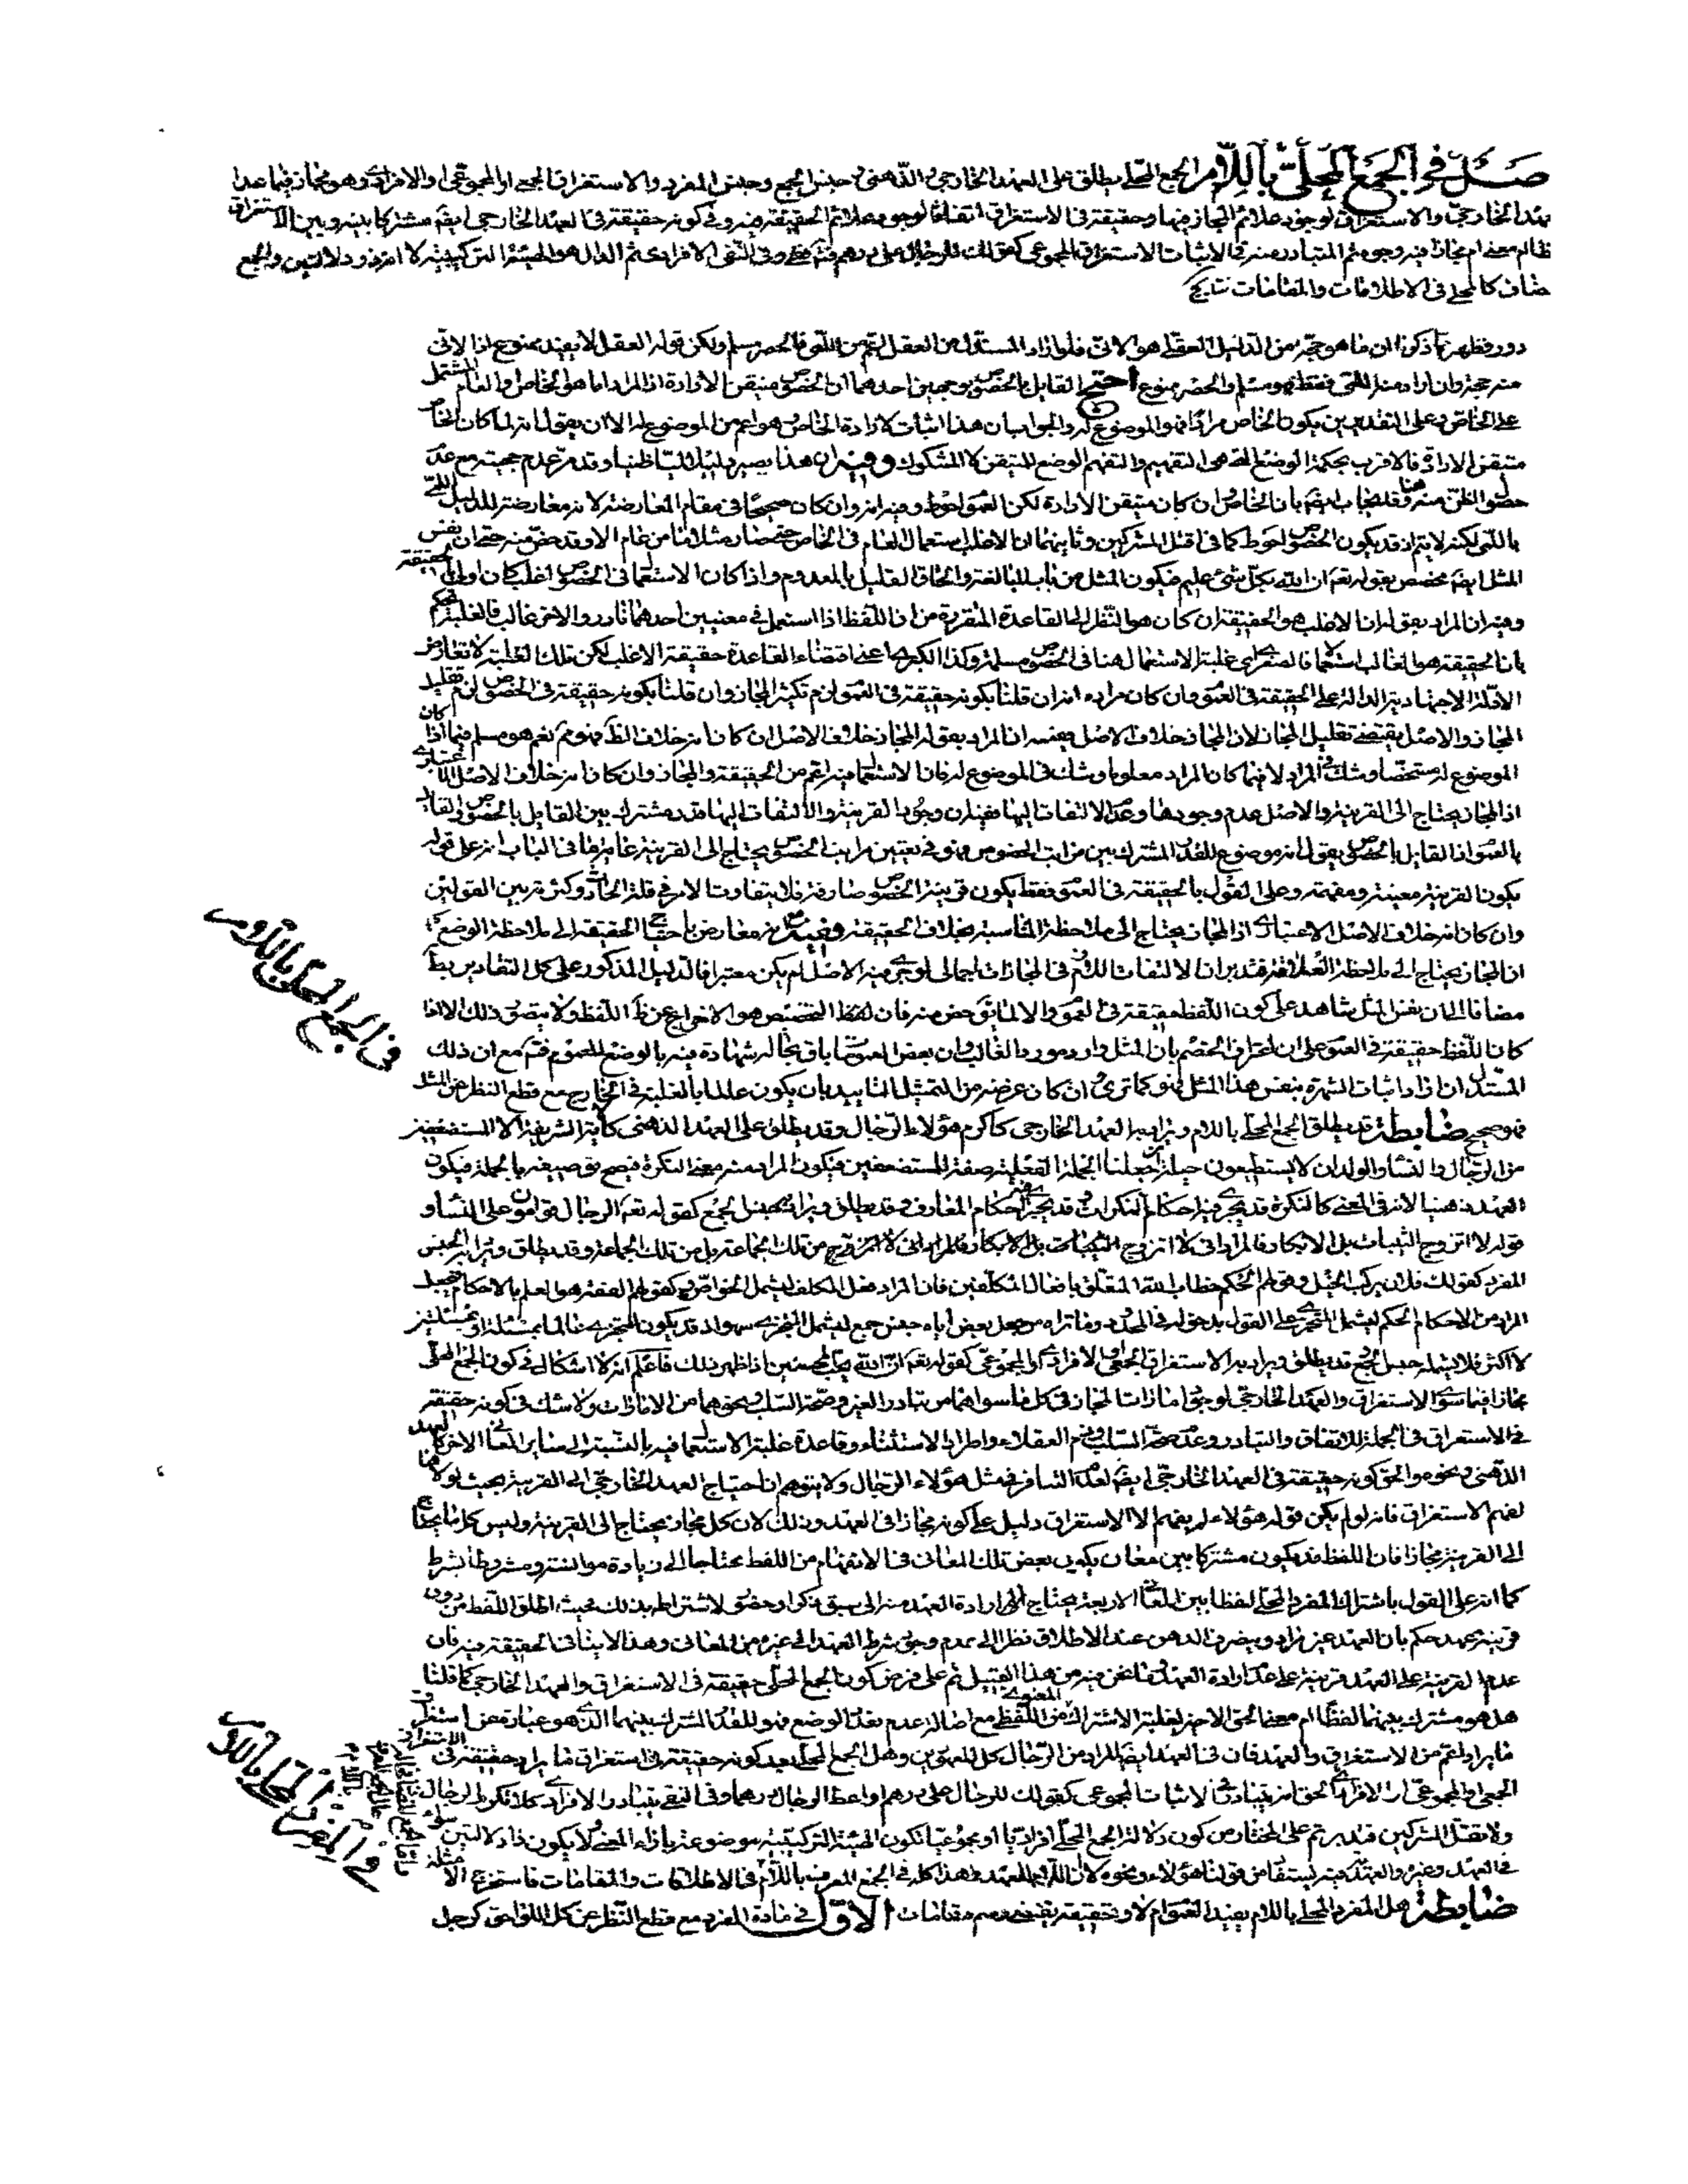 صل في الجمع المحلى باللام الجمع المحلى يطلق على العهد الخارجي والذهني وجنس الجمع وجنس المفرد والاستغراق الجمعي او المجموعي او الافرادي وهو مجاز فيما عدا
عهد الخارجي والاستغراق لوجود علائم المجاز فيها وحقيقة في الاستغراق اتفاقا لوجود علائم الحقيقة فيه وفي كونه حقيقة في العهد الخارجي ايضا مشتركا بينه وبين الاستغراق
لفظا ام معنى ام مجازا فيه وجوه ثم المتبادر منه في الاثبات الاستغراق المجموعي كقولك للرجال على درهم فتم وفي النفي الافرادي ثم الدال هو الهيئة التركيبية لا امر ذو دلالتين والجمع
ضاف كالمحلى في الاطلاقات والمقامات نتايج
دور فظهر بما ذكرنا ان ما هو حجة من الدليل العقلي هو الاني فلو اراد المستدل من العقل الاعم من اللمي فالحصر مسلم ولكن قوله العقل لا يفيد ممنوع اذ الاني
منه حجة وان اراد منه اللمي فقط فهو مسلم والحصر ممنوع احتج القايل بالخصوص بوجهين احدهما ان الخصوص متيقن الارادة اذ المراد اما هو الخاص والعام المشتمل
على الخاص وعلى التقديرين يكون الخاص مرادا فهو الموضوع له والجواب ان هذا اثبات لارادة الخاص هو اعم من الموضوع له الا ان يقول انه لما كان الخاص
متيقن الارادة فالاقرب بحكمة الوضع التي هي التفهيم والتفهم الوضع للمتيقن لا المشكوك وفيه ان هذا يصير دليلا لميا ظنيا وقد مر عدم حجيته مع عدم
حصول الظن منه هنا وقد يجاب ايضا بان الخاص وان كان متيقن الارادة لكن العموم احوط وفيه انه وان كان صحيحا في مقام المعارضة لانه معارضة للدليل اللمي
باللمي لكنه لا يتم اذ قد يكون الخصوص احوط كما في اقتل المشركين وثانيهما ان الاغلب استعمال العام في الخاص حتى صار مثلا ما من عام الا وقد خص منه حتى ان نفس
المثل ايضا مخصص بقوله تعالى ان الله بكل شيء عليم فيكون المثل من باب المبالغة والحاق القليل بالمعدوم واذا كان الاستعمال في الخصوص اغلب كان اولى بالحقيقة
وفيه ان المراد بقوله ان الاغلب هو الحقيقة ان كان هو النظر الى القاعدة المقررة من ان اللفظ اذا استعمل في معنيين احدهما نادر والاخر غالب فالغلبة تحكم
بان الحقيقة هو الغالب استعمالا فالصغرى اي غلبة الاستعمال هنا في الخصوص مسلمة وكذا الكبرى اعنى اقتضاء القاعدة حقيقة الاغلب لكن تلك الغلبة لا تعارض
الادلة الاجتهادية الدالة على الحقيقة في العموم وان كان مراده انه ان قلنا بكونه حقيقة في العموم لزم تكثير المجاز وان قلنا بكونه حقيقة في الخصوص لزم تقليل
المجاز والاصل يقتضي تقليل المجاز لان المجاز خلاف الاصل ففيه ان المراد بقوله المجاز خلاف الاصل ان كان انه خلاف الظاهر فهو ثم نعم هو مسلم فيما اذا كان
الموضوع له مشخصا وشك في المراد لا فيما كان المراد معلوما وشك في الموضوع له فان الاستعمال فيه اعم من الحقيقة والمجاز وان كان انه خلاف الاصل الاعتباري
اذ المجاز يحتاج الى القرينة والاصل عدم وجودها وعدم الالتفات اليها ففيه ان وجود القرينة والالتفات اليها قدر مشترك بين القايل بالخصوص والقايل
بالعموم اذ القايل بالخصوص يقول انه موضوع للقدر المشترك بين مراتب الخصوص فهو في تعيين مراتب الخصوص يحتاج الى القرينة غاية ما في الباب انه على قوله
يكون القرينة معينة ومفهمة وعلى القول بالحقيقة في العموم فقط يكون قرينة الخصوص صارفة فلا يتفاوت الامر في قلة الحادث وكثرته بين القولين
وان كان انه خلاف الاصل الاعتباري اذ المجاز يحتاج الى ملاحظة المناسبة بخلاف الحقيقة وفيه انه معارض باحتياج الحقيقة الى ملاحظة الوضع
اذ المجاز يحتاج الى ملاحظة العلاقة فتدبر ان الالتفات اللازم في المجازات اجمالي لو جرى فيه الاصل لم يكن معتبرا فالدليل المذكور على كل التقادير بط
مضافا الى ان نفس المثل شاهد على كون اللفظ حقيقة في العموم والا لما بقي خص منه فان لفظ التخصيص هو الاخراج عن ظاهر اللفظ ولا يتصور ذلك الا اذا
كان اللفظ حقيقة في العموم على ان اعتراف الخصم بان المثل وارد مورد الغالب وان بعض العمومات باق بحاله شهادة منه بالوضع للعموم فتم مع ان ذلك
المستدل ان اراد اثبات الشهرة بنفس هذا المثل فهو كما ترى وان كان غرضه من التمثيل التاييد بان يكون عالما بالغلبة في الخارج مع قطع النظر عن المثل
فهو صحيح ضابطة قد يطلق الجمع المحلى باللام ويراد به العهد الخارجي كاكرم هؤلاء الرجال وقد يطلق على العهد الذهني كاية الشريفة الا المستضعفين
من الرجال والنساء والولدان لا يستطيعون حيلة ان جعلنا الجملة الفعلية صفة للمستضعفين فيكون المراد منه معنى النكرة فيصح توصيفه بالجملة فيكون
العهد ذهنيا لانه في المعنى كالنكرة قد يجري فيه احكام النكرات وقد يجري فيه احكام المعارف وقد يطلق ويراد به جنس الجمع كقوله تعالى الرجال قوامون على النساء و
قوله لا اتزوج الثيبات بل الابكار فالمراد اني لا اتزوج من تلك الجماعة بل من تلك الجماعة وقد يطلق ويراد به الجنس
المفرد كقولك فلان يركب الخيل وقولهم الحكم خطاب الله المتعلق بافعال المكلفين فان المراد فعل المكلف ليشمل الخواص وكقولهم الفقه هو العلم بالاحكام فيجعل
المراد من الاحكام الحكم ليشمل المتجزي على القول بدخوله في الحدود وما تراه من جعل بعض اياه جنس جمع ليشمل المتجزي سهو اذ قد يكون المتجزي عالما بمسئلة او بمسئلتين
لا اكثر فلا يشمله جنس الجمع وقد يطلق ويراد به الاستغراق الجمعي او الافرادي او المجموعي كقوله تعالى ان الله يحب المحسنين اذا ظهر ذلك فاعلم انه لا اشكال في كون الجمع المحلى
مجازا فيما سوى الاستغراق والعهد الخارجي لوجود امارات المجاز في كل ما سواهما من تبادر الغير وصحة السلب ونحوهما من الامارات ولا شك في كونه حقيقة
في الاستغراق في الجملة للاتفاق والتبادر وعدم صحة السلب وفهم العقلاء واطراد الاستثناء وقاعدة غلبة الاستعمال فيه بالنسبة الى ساير المعاني الاخر كالعهد
الذهني ونحوه والحق كونه حقيقة في العهد الخارجي ايضا لعدم التنافر في مثل هؤلاء الرجال ولا يتوهم ان احتياج العهد الخارجي الى القرينة بحيث لولاها
لفهم الاستغراق فانه لو لم يكن قوله هؤلاء لم يفهم الا الاستغراق دليل على كونه مجازا في العهد وذلك لان كل مجاز يحتاج الى القرينة وليس كل ما يحتاج
الى القرينة مجازا فان اللفظ قد يكون مشتركا بين معان يكون بعض تلك المعاني في الانفهام من اللفظ محتاجا الى زيادة موانسة ومشروطا بشرط
كما انه على القول باشتراك المفرد المحلى لفظا بين المعاني الاربعة يحتاج في ارادة العهد منه الى سبق ذكر او حضور لاشتراطه بذلك بحيث اطلق اللفظ من دون
قرينة عهد حكم بان العهد غير مراد وينصرف الذهن عند الاطلاق نظرا الى عدم وجود شرط العهد الى غيره من المعاني وهذا لا ينافي الحقيقة فيه فان
عدم القرينة على العهد قرينة على عدم ارادة العهد وما نحن فيه من هذا القبيل ثم على فرض كون الجمع المحلى حقيقة في الاستغراق والعهد الخارجي كما قلنا
هل هو مشترك بينهما لفظا ام معنى الحق الاخير لغلبة الاشتراك المعنوي من اللفظي مع اصالة عدم تعدد الوضع فهو للقدر المشترك بينهما الذي هو عبارة عن استغراق
ما يراد اعم من الاستغراق والعهد فان في العهد ايضا المراد من الرجال كل المعهودين وهل الجمع المحلى بعد كونه حقيقة في استغراق ما يراد حقيقة في الاستغراق
الجمعي او المجموعي او الافرادي الحق انه يتبادر في الاثبات المجموعي كقولك للرجال على درهم واعط الرجال درهما وفي النفي يتبادر الافرادي كلا تكرم الرجال
ولا تقتل المشركين فتدبر ثم على المختار من كون دلالة الجمع المحلى افراديا او مجموعيا تكون الهيئة التركيبية موضوعة بازاء المعنى ولا يكون ذا دلالتين سواء
في العهد وغيره والعهدية ليست تفاس من قولنا هؤلاء ونحوه لا ان اللام للعهد هذا كله في الجمع المعرف باللام في الاطلاقات والمقامات فاستخرج الا مثلة
ضابطة هل المفرد المحلى باللام يفيد العموم ام لا وتحقيقه يقتضي رسم مقامات الاول في مادة المفرد مع قطع النظر عن كل اللواحق كرجل
في الجمع المحلى باللام
في المفرد المحلى باللام